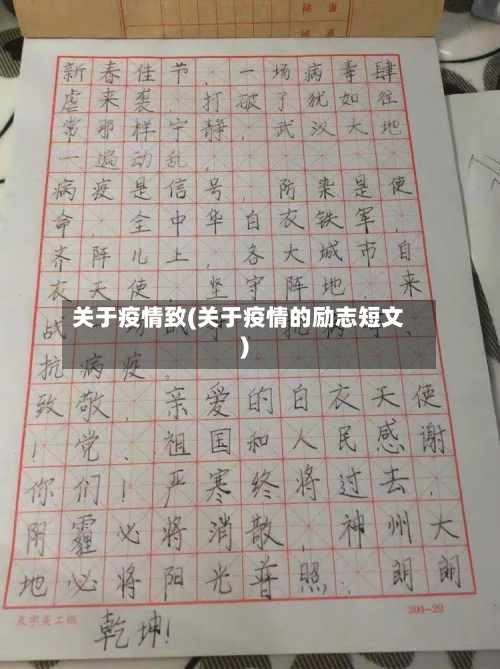 新春佳节，一场病毒肆
虐来袭，打破了犹如往
常那样宁静，武汉大地
一遍动乱，
病疫是信号，防染是使
命，全中华白衣铁军，
齐阵儿上，各大城市白
衣天使，坚守阵地，来
战
关于疫情致(关于疫情的励志短文
)
抗病疫。
致敬，亲爱的白衣天使
！党、祖国和人民感谢
你们！严寒终将过去，
阴霾必将消散，神州大
地必将阳光普照，朗朗
乾坤！
204-29